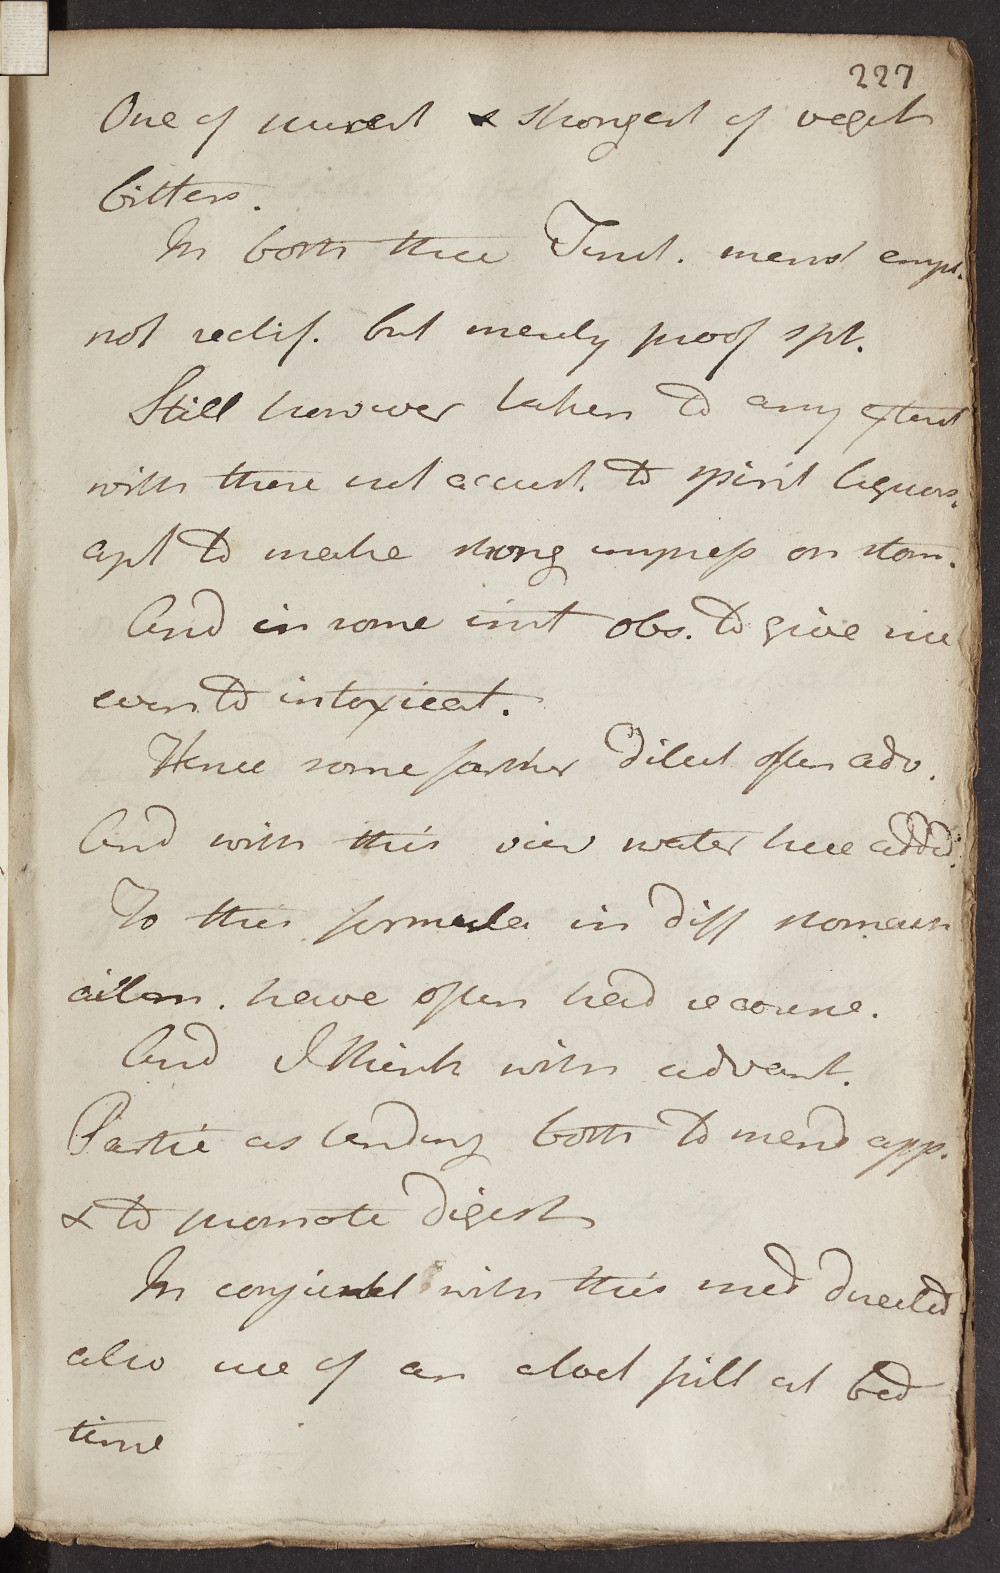 227
One of purest & strongest of veget
bitters.
In both these Tinct. menst empl.
not rectif. but merely proof spt.
Still however taken to any extent
with those not accust. to spirit liquors.
apt to make strong impress on stom.
And in some inst obs. to give rise
even to intoxicat.
Hence some farther dilut often adv.
And with this view water here added.
To this formula in diff stomach
ailm. have often had recourse.
And I think with advant.
Partic as tending both to mend app.
& to promote digest
In conjunct with this med directed
also use of an aloet pill at bed
time